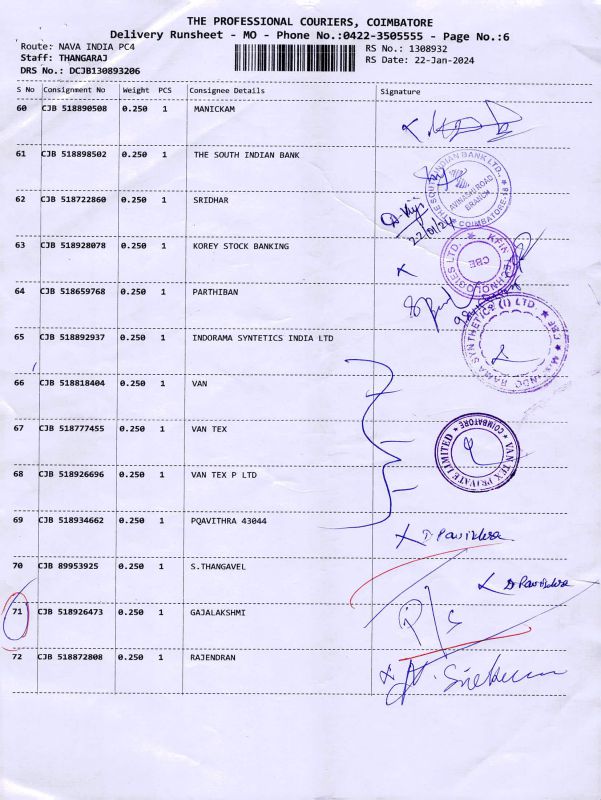 THE PROFESSIONAL COURIERS, COIMBATORE
Delivery Runsheet - MO - Phone No.:0422-3505555 - Page No.:6
Route: NAVA INDIA PC4 RS No.: 1308932
Staff: THANGARAJ RS Date: 22-Jan-2024
DRS No.: DCJB130893206
S No Consignment No Weight PCS Consignee Details Signature
60 CJB 518890508 0.250 1 MANICKAM
61 CJB 518898502 0.250 1 THE SOUTH INDIAN BANK
THE SOUTH INDIAN BANK LTD.
AVINASHI ROAD
BRANCH
COIMBATORE-18
62 CJB 518722860 0.250 1 SRIDHAR
22/01/24
63 CJB 518928078 0.250 1 KOREY STOCK BANKING
CBE
64 CJB 518659768 0.250 1 PARTHIBAN
65 CJB 518892937 0.250 1 INDORAMA SYNTETICS INDIA LTD
M/s. INDO RAMA SYNTHETICS (I) LTD. CBE
66 CJB 518818404 0.250 1 VAN
67 CJB 518777455 0.250 1 VAN TEX
VAN TEX PRIVATE LIMITED
COIMBATORE
68 CJB 518926696 0.250 1 VAN TEX P LTD
69 CJB 518934662 0.250 1 PQAVITHRA 43044
70 CJB 89953925 0.250 1 S.THANGAVEL
71 CJB 518926473 0.250 1 GAJALAKSHMI
72 CJB 518872808 0.250 1 RAJENDRAN